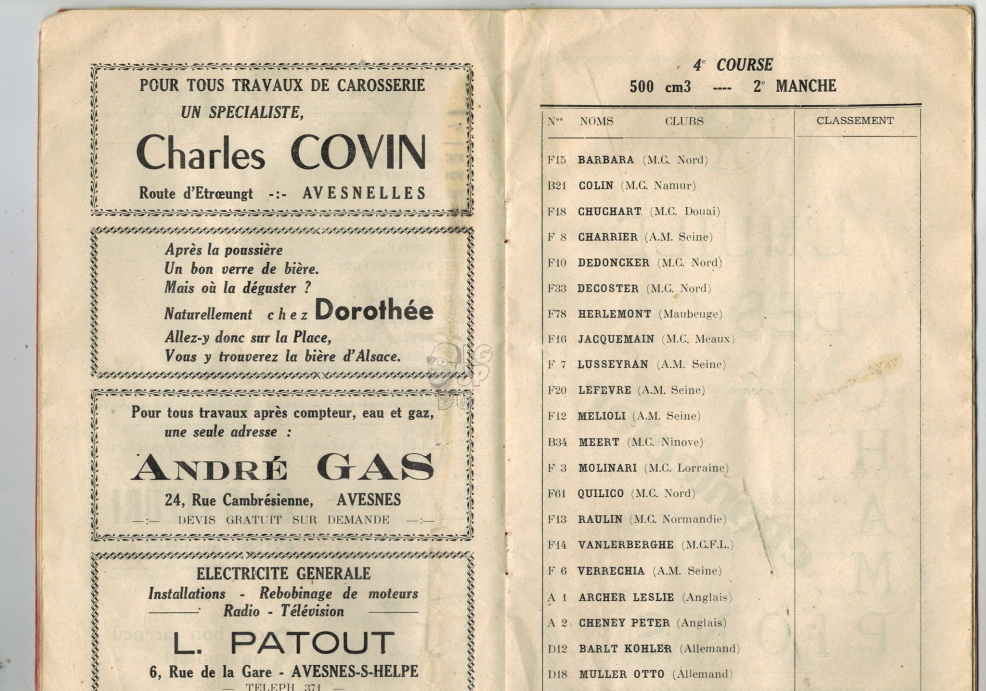 POUR TOUS TRAVAUX DE CAROSSERIE
UN SPECIALISTE,
Charles COVIN
Route d'Etrœungt -:- AVESNELLES
Après la poussière
Un bon verre de bière.
Mais où la déguster ?
Naturellement chez Dorothée
Allez-y donc sur la Place,
Vous y trouverez la bière d'Alsace.
Pour tous travaux après compteur, eau et gaz,
une seule adresse :
ANDRÉ GAS
24, Rue Cambrésienne, AVESNES
—:— DEVIS GRATUIT SUR DEMANDE —:—
ELECTRICITE GENERALE
Installations - Rebobinage de moteurs
Radio - Télévision
L. PATOUT
6, Rue de la Gare - AVESNES-S-HELPE
— TELEPH 371 —
4e COURSE
500 cm3 ---- 2e MANCHE
Nos NOMS CLUBS CLASSEMENT
F15 BARBARA (M.C. Nord)
B21 COLIN (M.C. Namur)
F18 CHUCHART (M.C. Douai)
F 8 CHARRIER (A.M. Seine)
F10 DEDONCKER (M.C. Nord)
F33 DECOSTER (M.C. Nord)
F78 HERLEMONT (Maubeuge)
F16 JACQUEMAIN (M.C. Meaux)
F 7 LUSSEYRAN (A.M. Seine)
F20 LEFEVRE (A.M. Seine)
F12 MELIOLI (A.M. Seine)
B34 MEERT (M.C. Ninove)
F 3 MOLINARI (M.C. Lorraine)
F61 QUILICO (M.C. Nord)
F13 RAULIN (M.C. Normandie)
F14 VANLERBERGHE (M.C.F.L.)
F 6 VERRECHIA (A.M. Seine)
A 1 ARCHER LESLIE (Anglais)
A 2 CHENEY PETER (Anglais)
D12 BARLT KOHLER (Allemand)
D18 MULLER OTTO (Allemand)